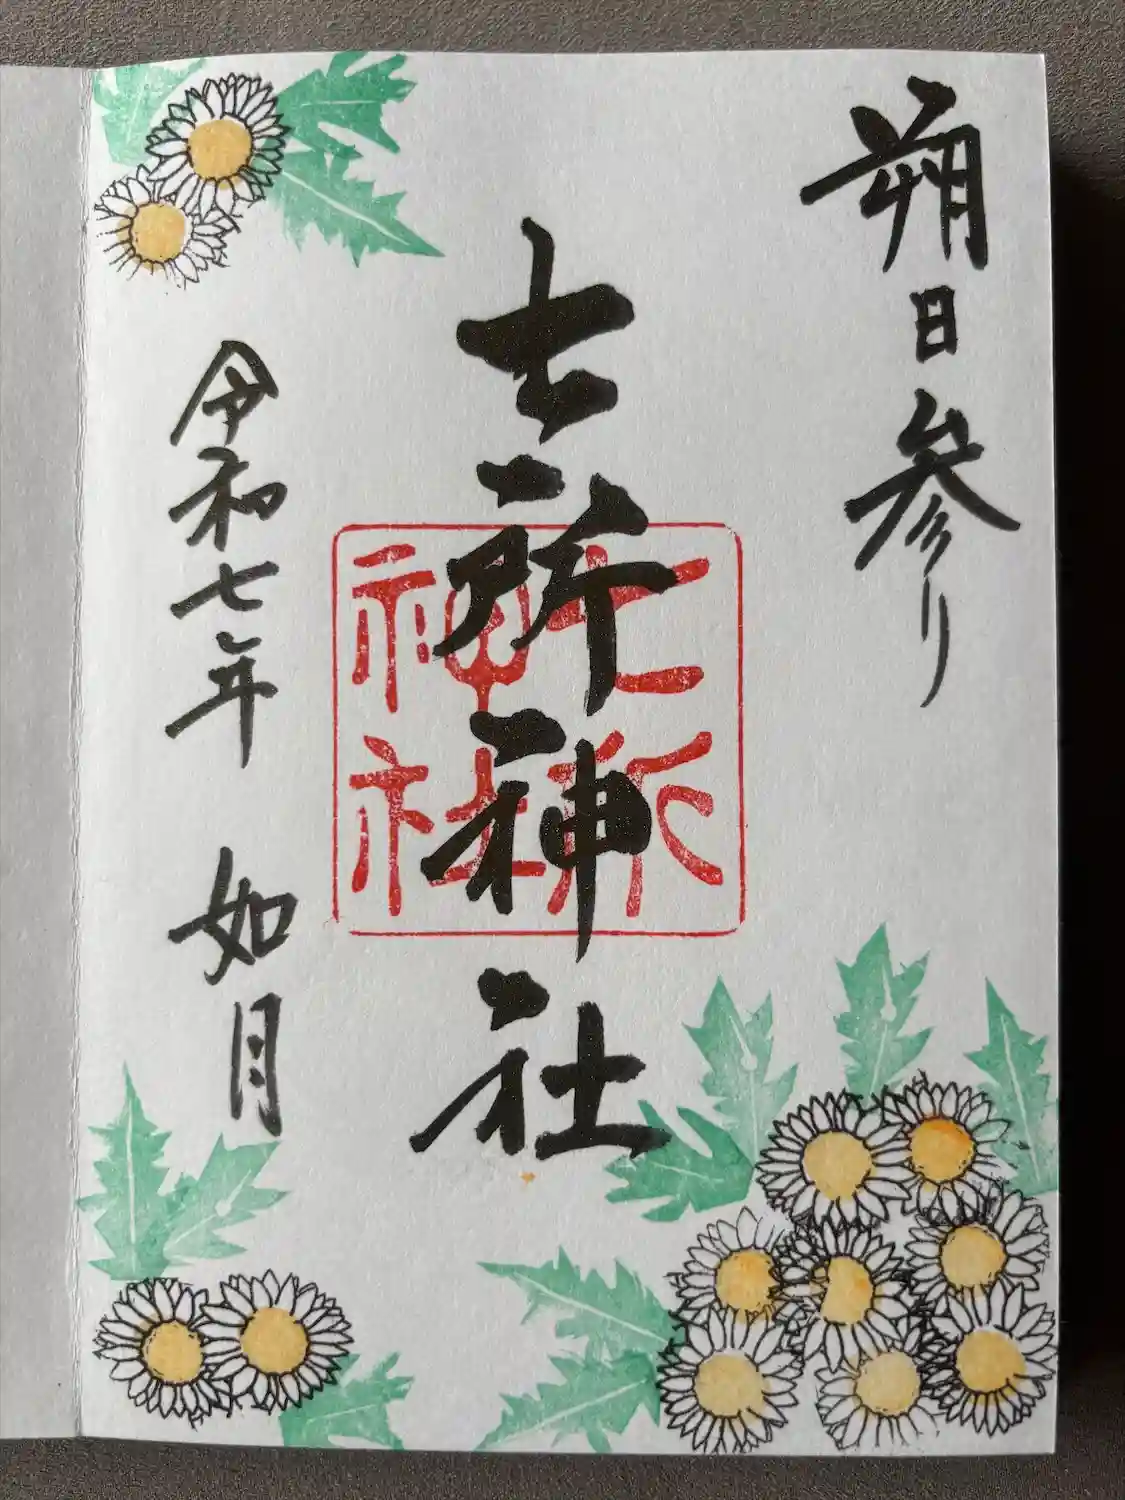 朔日参り
七所神社
七所
神社
令和七年 如月